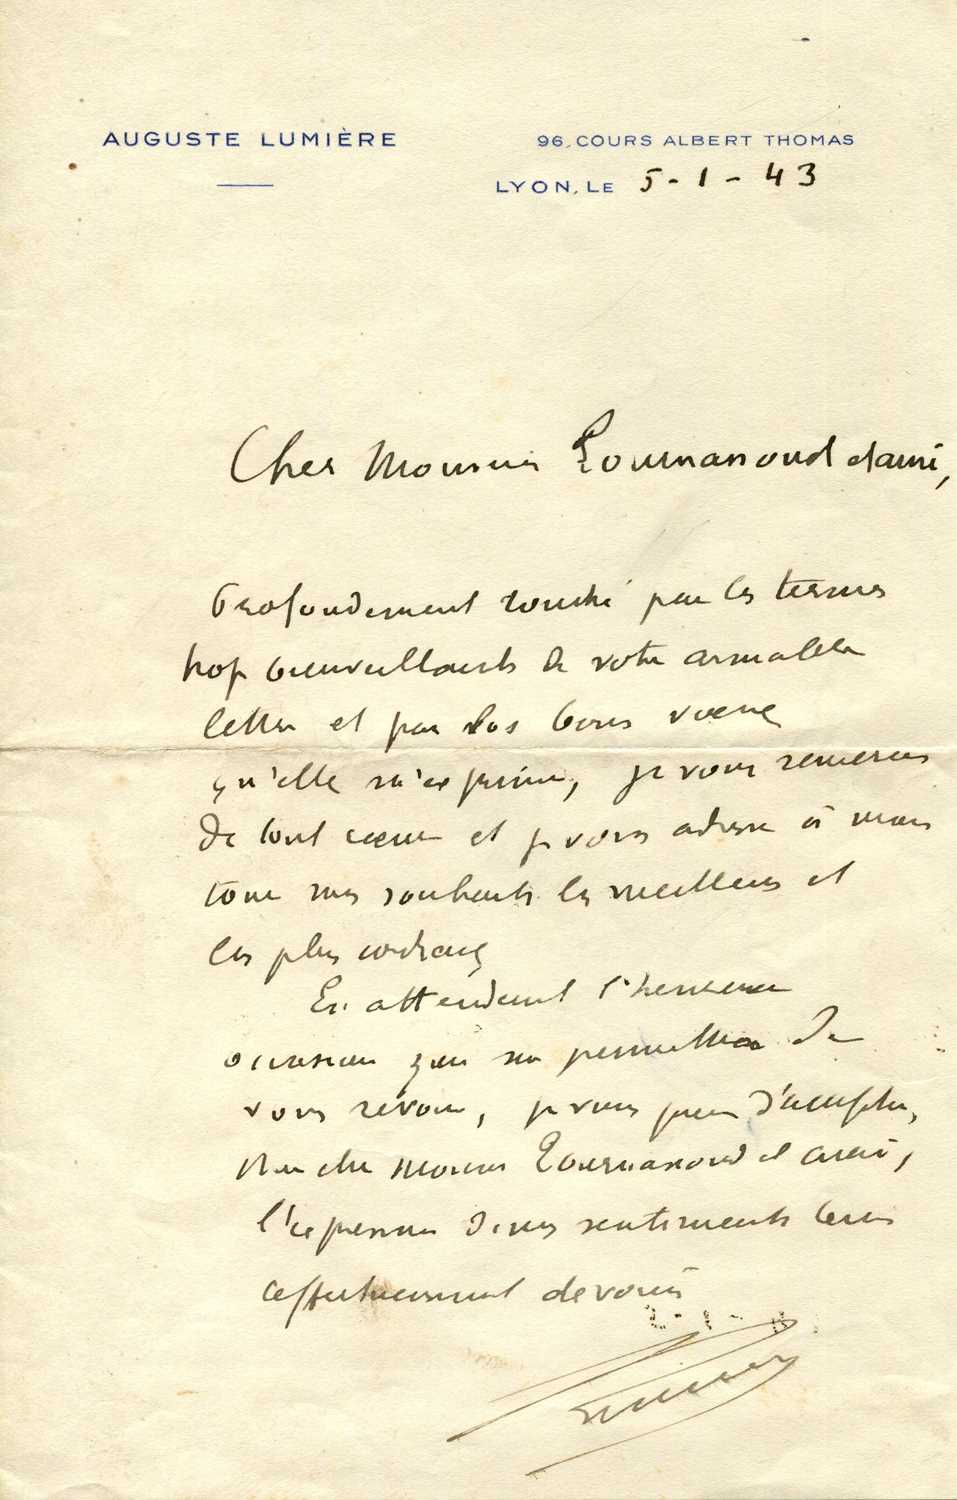 AUGUSTE LUMIÈRE
96, COURS ALBERT THOMAS
LYON, LE 5-1-43
Cher Monsieur Tournassoud et ami,
Profondément touché par les termes
trop bienveillants de votre aimable
lettre et par les bons vœux
qu'elle m'exprime, je vous remercie
de tout cœur et je vous adresse à mon
tour mes souhaits les meilleurs et
les plus cordiaux
En attendant l'heureuse
occasion qui me permettra de
vous revoir, je vous prie d'accepter,
mon cher Monsieur Tournassoud et ami,
l'expression de mes sentiments bien
affectueusement dévoués